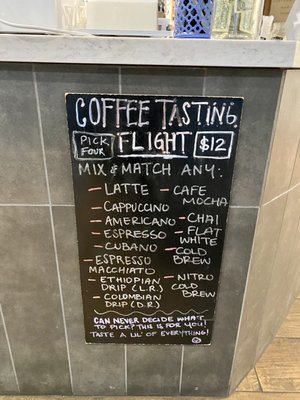 COFFEE TASTING
PICK FOUR
FLIGHT
$12
MIX & MATCH ANY:
- LATTE
- CAPPUCCINO
- AMERICANO
- ESPRESSO
- CUBANO
- ESPRESSO
MACCHIATO
- ETHIOPIAN
DRIP (L.R)
- COLOMBIAN
DRIP (D.R)
- CAFE
MOCHA
- CHAI
- FLAT
WHITE
- COLD
BREW
- NITRO
COLD
BREW
CAN NEVER DECIDE WHAT
TO PICK? THIS IS FOR YOU!
TASTE A LIL' OF EVERYTHING!